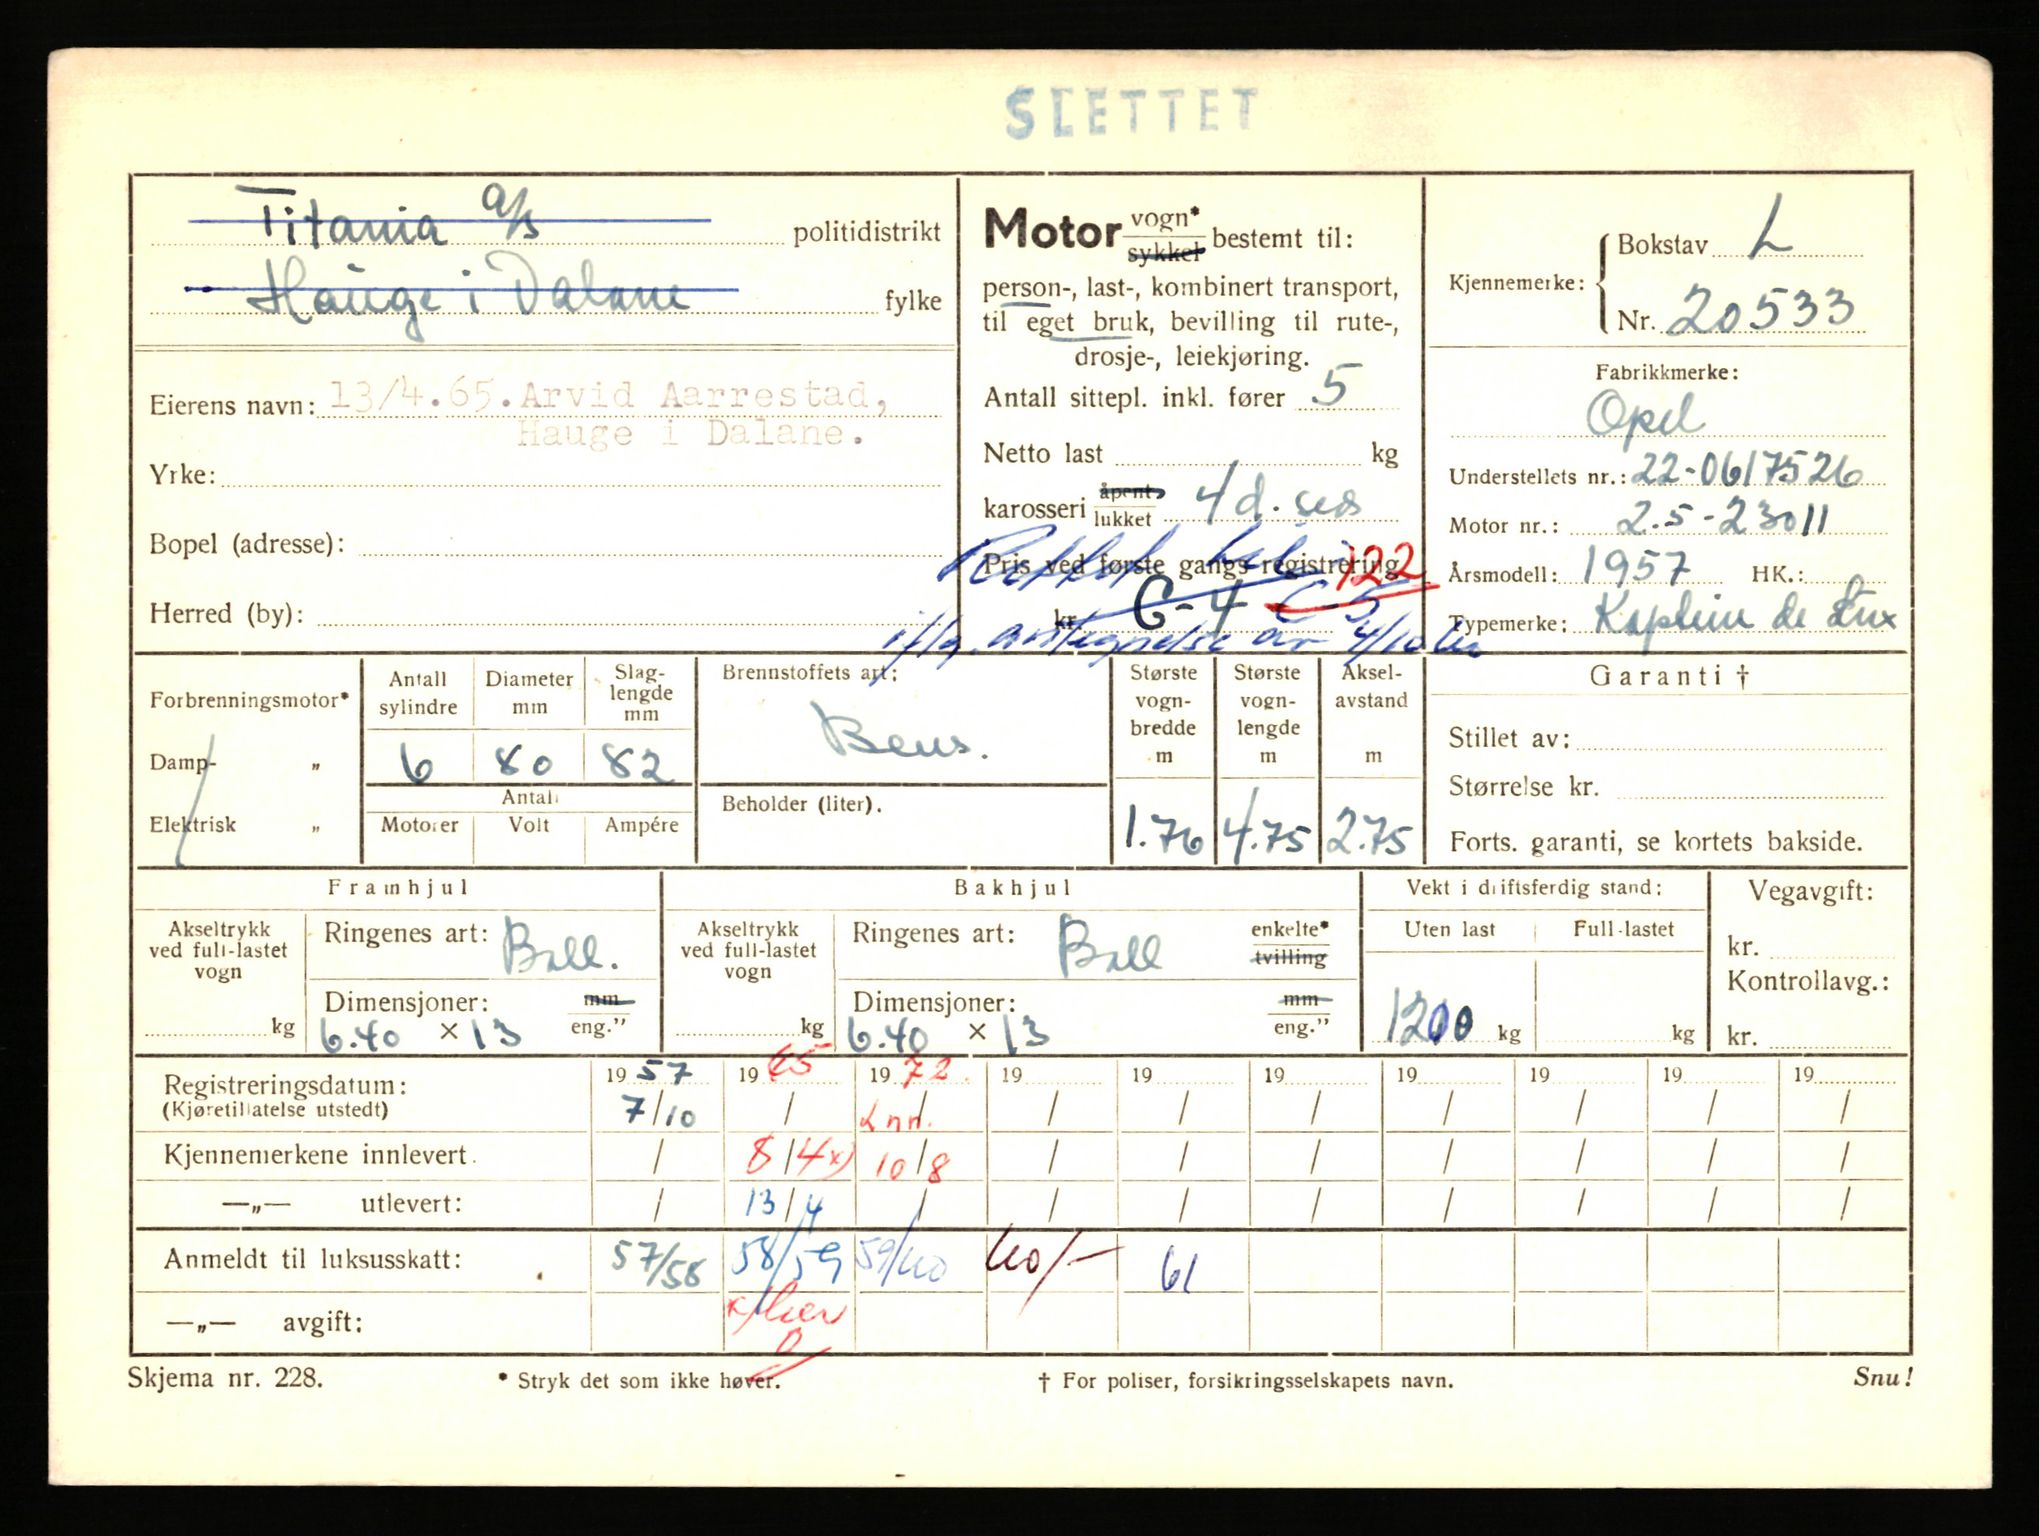 SLETTET
Titania A/S politidistrikt
Hauge i Dalane fylke
Eierens navn: 13/4.65. Arvid Aarrestad,
Hauge i Dalane.
Yrke:
Bopel (adresse):
Herred (by):
Motor vogn* sykkel bestemt til:
person-, last-, kombinert transport,
til eget bruk, bevilling til rute-,
drosje-, leiekjøring.
Antall sittepl. inkl. fører 5
Netto last kg
karosseri åpent lukket 4 d.
Pris ved første gangs registrering 122
kr. C-4 C-5
iflg. av 4/10
Kjennemerke: Bokstav L
Nr. 20533
Fabrikkmerke:
Opel
Understellets nr.: 22-0617526
Motor nr.: 2.5-23011
Årsmodell: 1957 HK.:
Typemerke: Kaptein de Lux
Forbrenningsmotor*
Damp- „
Elektrisk „
Antall sylindre
Diameter mm
Slag-lengde mm
6 80 82
Antall
Motorer Volt Ampére
Brennstoffets art:
Bens.
Beholder (liter).
Største vogn-bredde m
Største vogn-lengde m
Aksel-avstand m
1.76 4.75 2.75
Garanti †
Stillet av:
Størrelse kr.
Forts. garanti, se kortets bakside.
Framhjul
Akseltrykk ved full-lastet vogn
kg
Ringenes art: Ball.
Dimensjoner: mm eng.”
6.40 × 13
Bakhjul
Akseltrykk ved full-lastet vogn
kg
Ringenes art: Ball enkelte* tvilling
Dimensjoner: mm eng.”
6.40 × 13
Vekt i driftsferdig stand:
Uten last Full-lastet
1200 kg kg
Vegavgift:
kr.
Kontrollavg.:
kr.
Registreringsdatum: 19 57 19 65 19 72 19 19 19 19 19 19 19
(Kjøretillatelse utstedt) 7/10 / Lnn. / / / / / / / /
Kjennemerkene innlevert. / 8/4 x) 10/8 / / / / / / /
—„— utlevert: / 13/4 / / / / / / / /
Anmeldt til luksusskatt: 57/58 58/59 59/60 60/- 61
—„— avgift:
Skjema nr. 228.
* Stryk det som ikke høver.
† For poliser, forsikringsselskapets navn.
Snu!